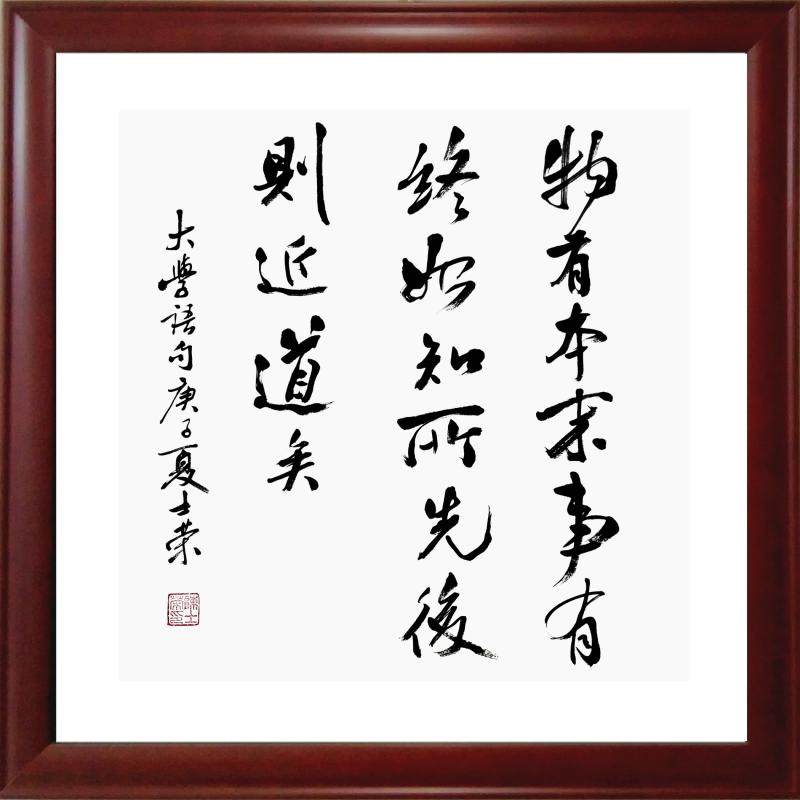 物有本末事有
終始知所先後
則近道矣
大學語句庚子夏士榮